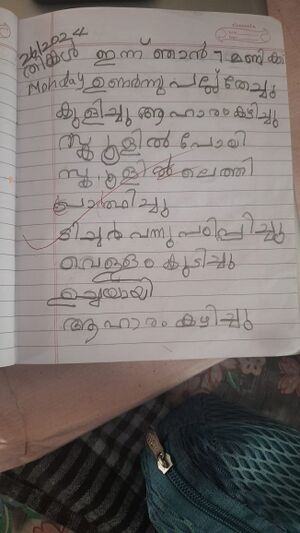 26/2024
തിങ്കൾ ഇന്ന് ഞാൻ 7 മണിക്ക്
Monday ഉണർന്നു പല്ല് തേച്ചു
കുളിച്ചു ആഹാരം കഴിച്ചു
സ്കൂളിൽ പോയി
സ്കൂളിൽ ലെത്തി
പ്രാർത്ഥിച്ചു
ടിച്ചർ വന്നു പഠിപ്പിച്ചു
വെള്ളം കുടിച്ചു
ഉച്ചയായി
ആഹാരം കഴിച്ചു